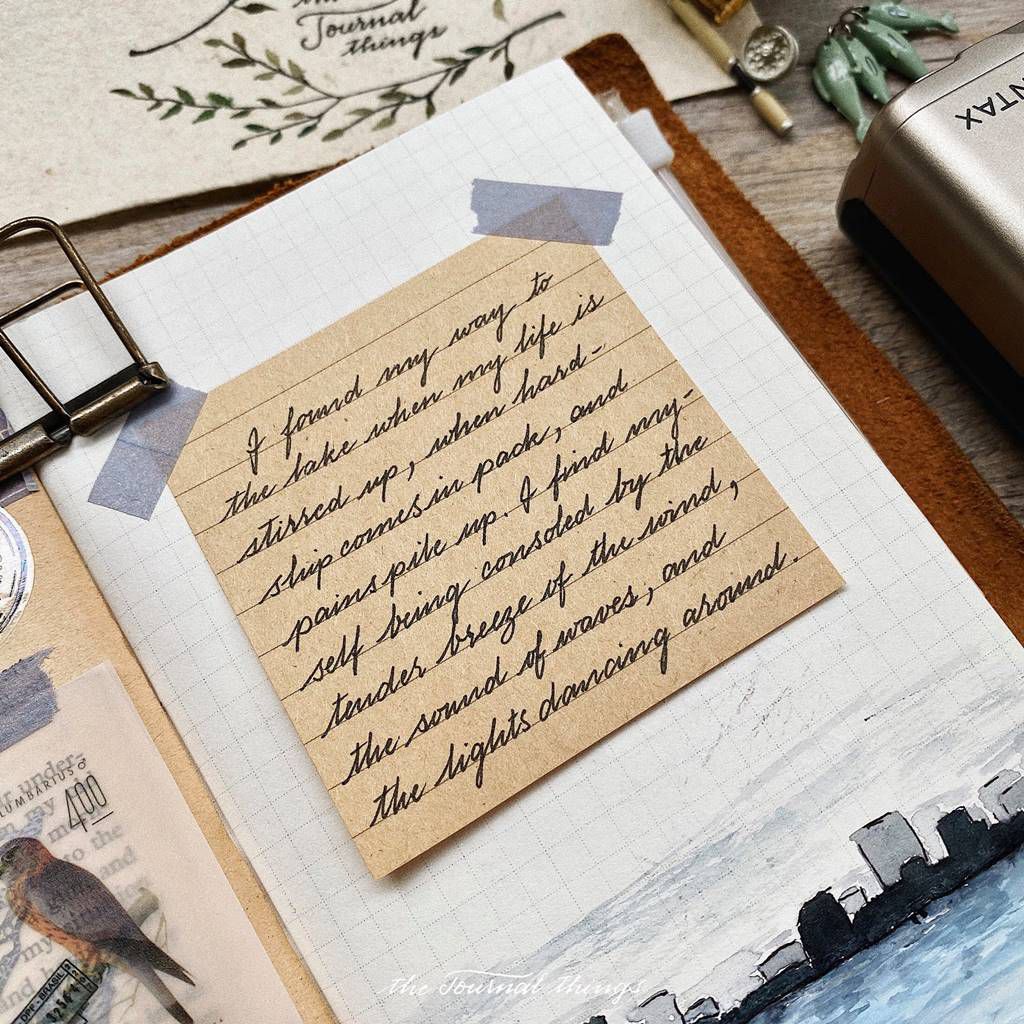 the
Journal
things
NTAX
I found my way to
the lake when my life is
stirred up, when hard-
ship comes in pack, and
pains pile up. I find my-
self being consoled by the
tender breeze of the wind,
the sound of waves, and
the lights dancing around.
under-
LUMBARIUS
400
my
to the
and
my
and
DPF-BRASIL
the Journal things